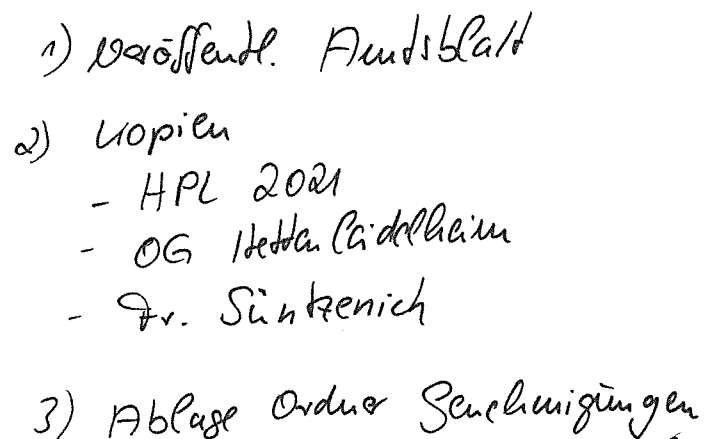 1) Veröffentl. Amtsblatt
2) Kopien
- HPL 2021
- OG Hettenleidelheim
- Fr. Süntzenich
3) Ablage Ordner Genehmigungen